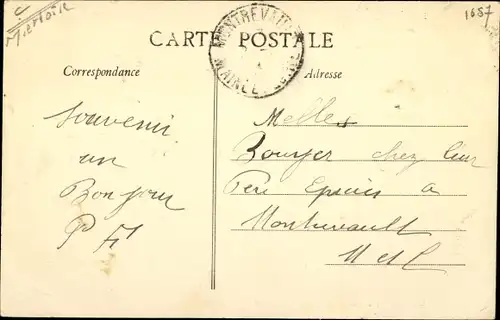 1657
CARTE POSTALE
MONTREVAULT
MAINE-ET-LOIRE
Correspondance
Adresse
Souvenir
un
Bonjour
P H
Melles
chez leur
Pere Epicier a
Montrevault
M et L